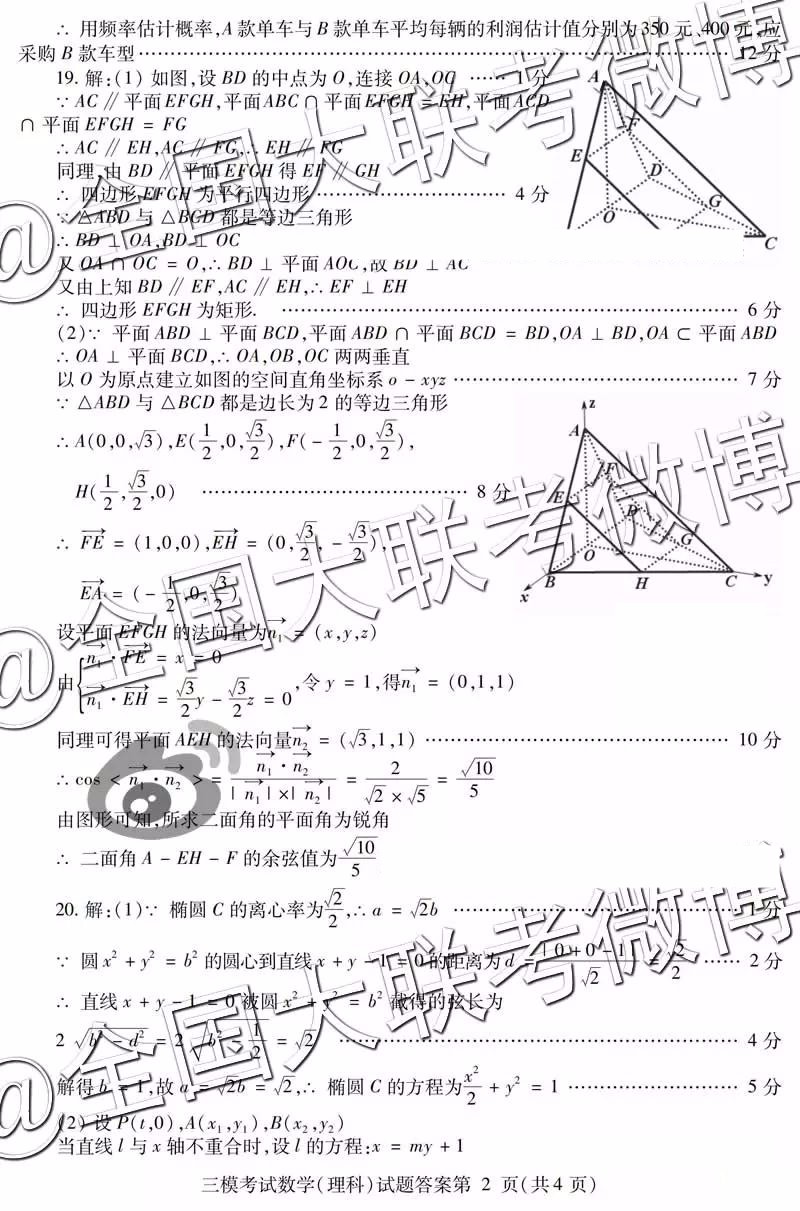 ∴ 用频率估计概率,A款单车与B款单车平均每辆的利润估计值分别为350元、400元,应
采购B款车型 …… 12分
19. 解:(1) 如图,设BD的中点为O,连接OA、OC …… 1分
∵ AC ∥ 平面EFGH,平面ABC ∩ 平面EFGH = EH,平面ACD
∩ 平面EFGH = FG
∴ AC ∥ EH,AC ∥ FG,∴ EH ∥ FG
同理,由BD ∥ 平面EFGH得EF ∥ GH
∴ 四边形EFGH为平行四边形 …… 4分
∵ △ABD与△BCD都是等边三角形
∴ BD ⊥ OA,BD ⊥ OC
又OA ∩ OC = O,∴ BD ⊥ 平面AOC,故BD ⊥ AC
又由上知BD ∥ EF,AC ∥ EH,∴ EF ⊥ EH
∴ 四边形EFGH为矩形. …… 6分
(2)∵ 平面ABD ⊥ 平面BCD,平面ABD ∩ 平面BCD = BD,OA ⊥ BD,OA ⊂ 平面ABD
∴ OA ⊥ 平面BCD,∴ OA,OB,OC两两垂直
以O为原点建立如图的空间直角坐标系o − xyz …… 7分
∵ △ABD与△BCD都是边长为2的等边三角形
∴ A(0,0,√3),E(1/2,0,√3/2),F(−1/2,0,√3/2),
H(1/2,√3/2,0) …… 8分
∴ FE→ = (1,0,0),EH→ = (0,√3/2,−√3/2),
EA→ = (−1/2,0,√3/2)
设平面EFGH的法向量为n₁→ = (x,y,z)
由{n₁→·FE→ = x = 0
n₁→·EH→ = √3/2 y − √3/2 z = 0 ,令y = 1,得n₁→ = (0,1,1)
同理可得平面AEH的法向量n₂→ = (√3,1,1) …… 10分
∴ cos < n₁→·n₂→ > = n₁→·n₂→ / |n₁→|×|n₂→| = 2/(√2×√5) = √10/5
由图形可知,所求二面角的平面角为锐角
∴ 二面角A − EH − F的余弦值为√10/5
20. 解:(1)∵ 椭圆C的离心率为√2/2,∴ a = √2b …… 1分
∵ 圆x² + y² = b²的圆心到直线x + y − 1 = 0的距离为d = |0+0−1|/√2 = √2/2 …… 2分
∴ 直线x + y − 1 = 0被圆x² + y² = b²截得的弦长为
2√(b² − d²) = 2√(b² − 1/2) = √2 …… 4分
解得b = 1,故a = √2b = √2,∴ 椭圆C的方程为x²/2 + y² = 1 …… 5分
(2)设P(t,0),A(x₁,y₁),B(x₂,y₂)
当直线l与x轴不重合时,设l的方程:x = my + 1
三模考试数学(理科)试题答案第 2 页(共4页)
A
F
E
D
G
O
C
z
A
F
E
D
G
O
B
H
C
y
x
@全国大联考微博
@全国大联考微博
@全国大联考微博